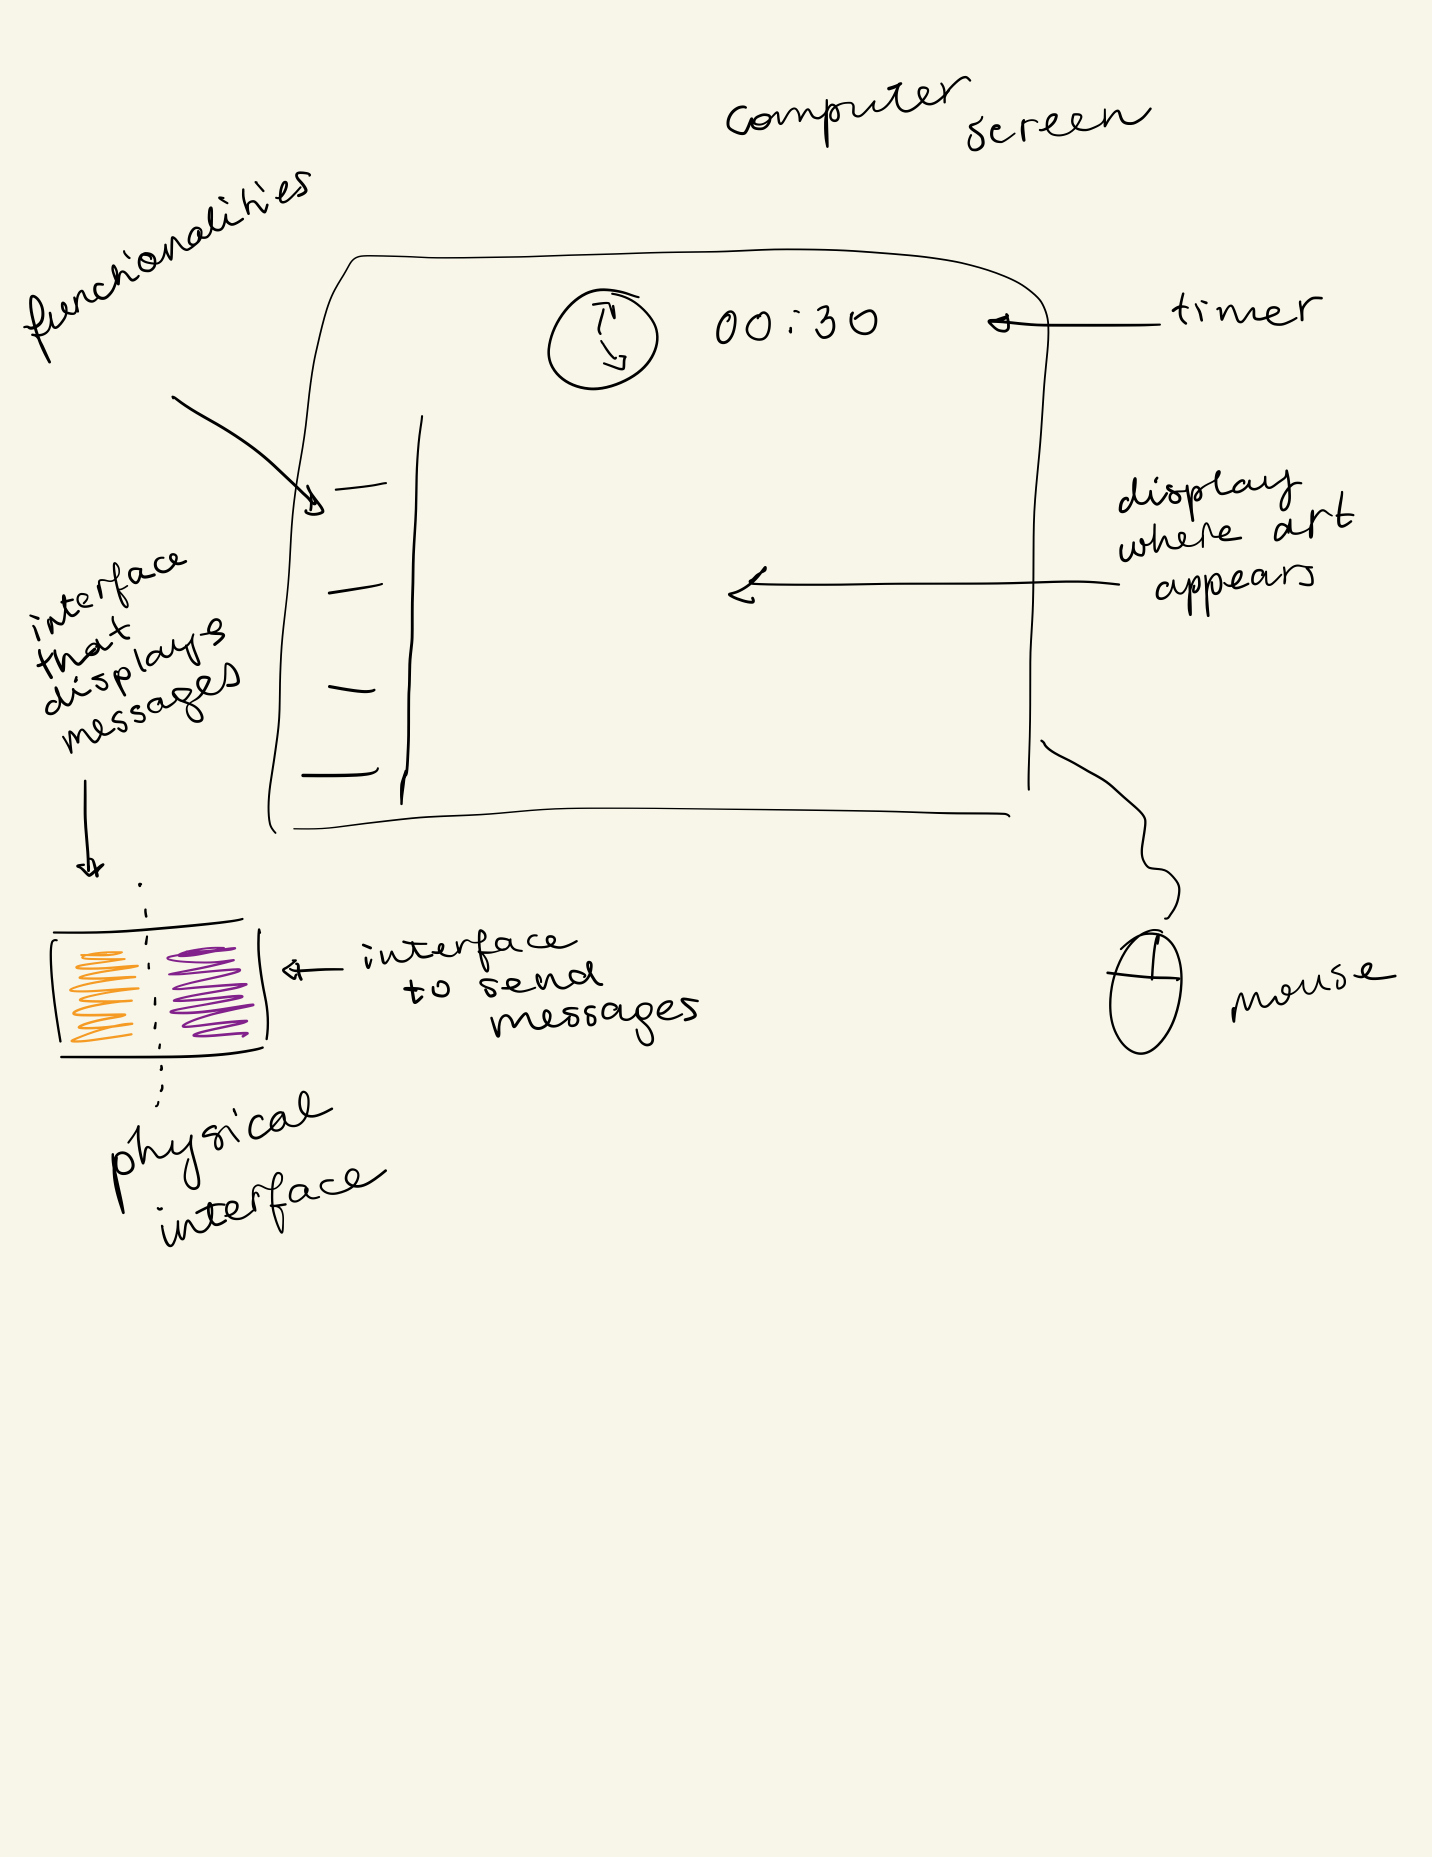 computer
screen
functionalities
00:30
timer
display
where art
appears
interface
that
displays
messages
interface
to send
messages
mouse
physical
interface